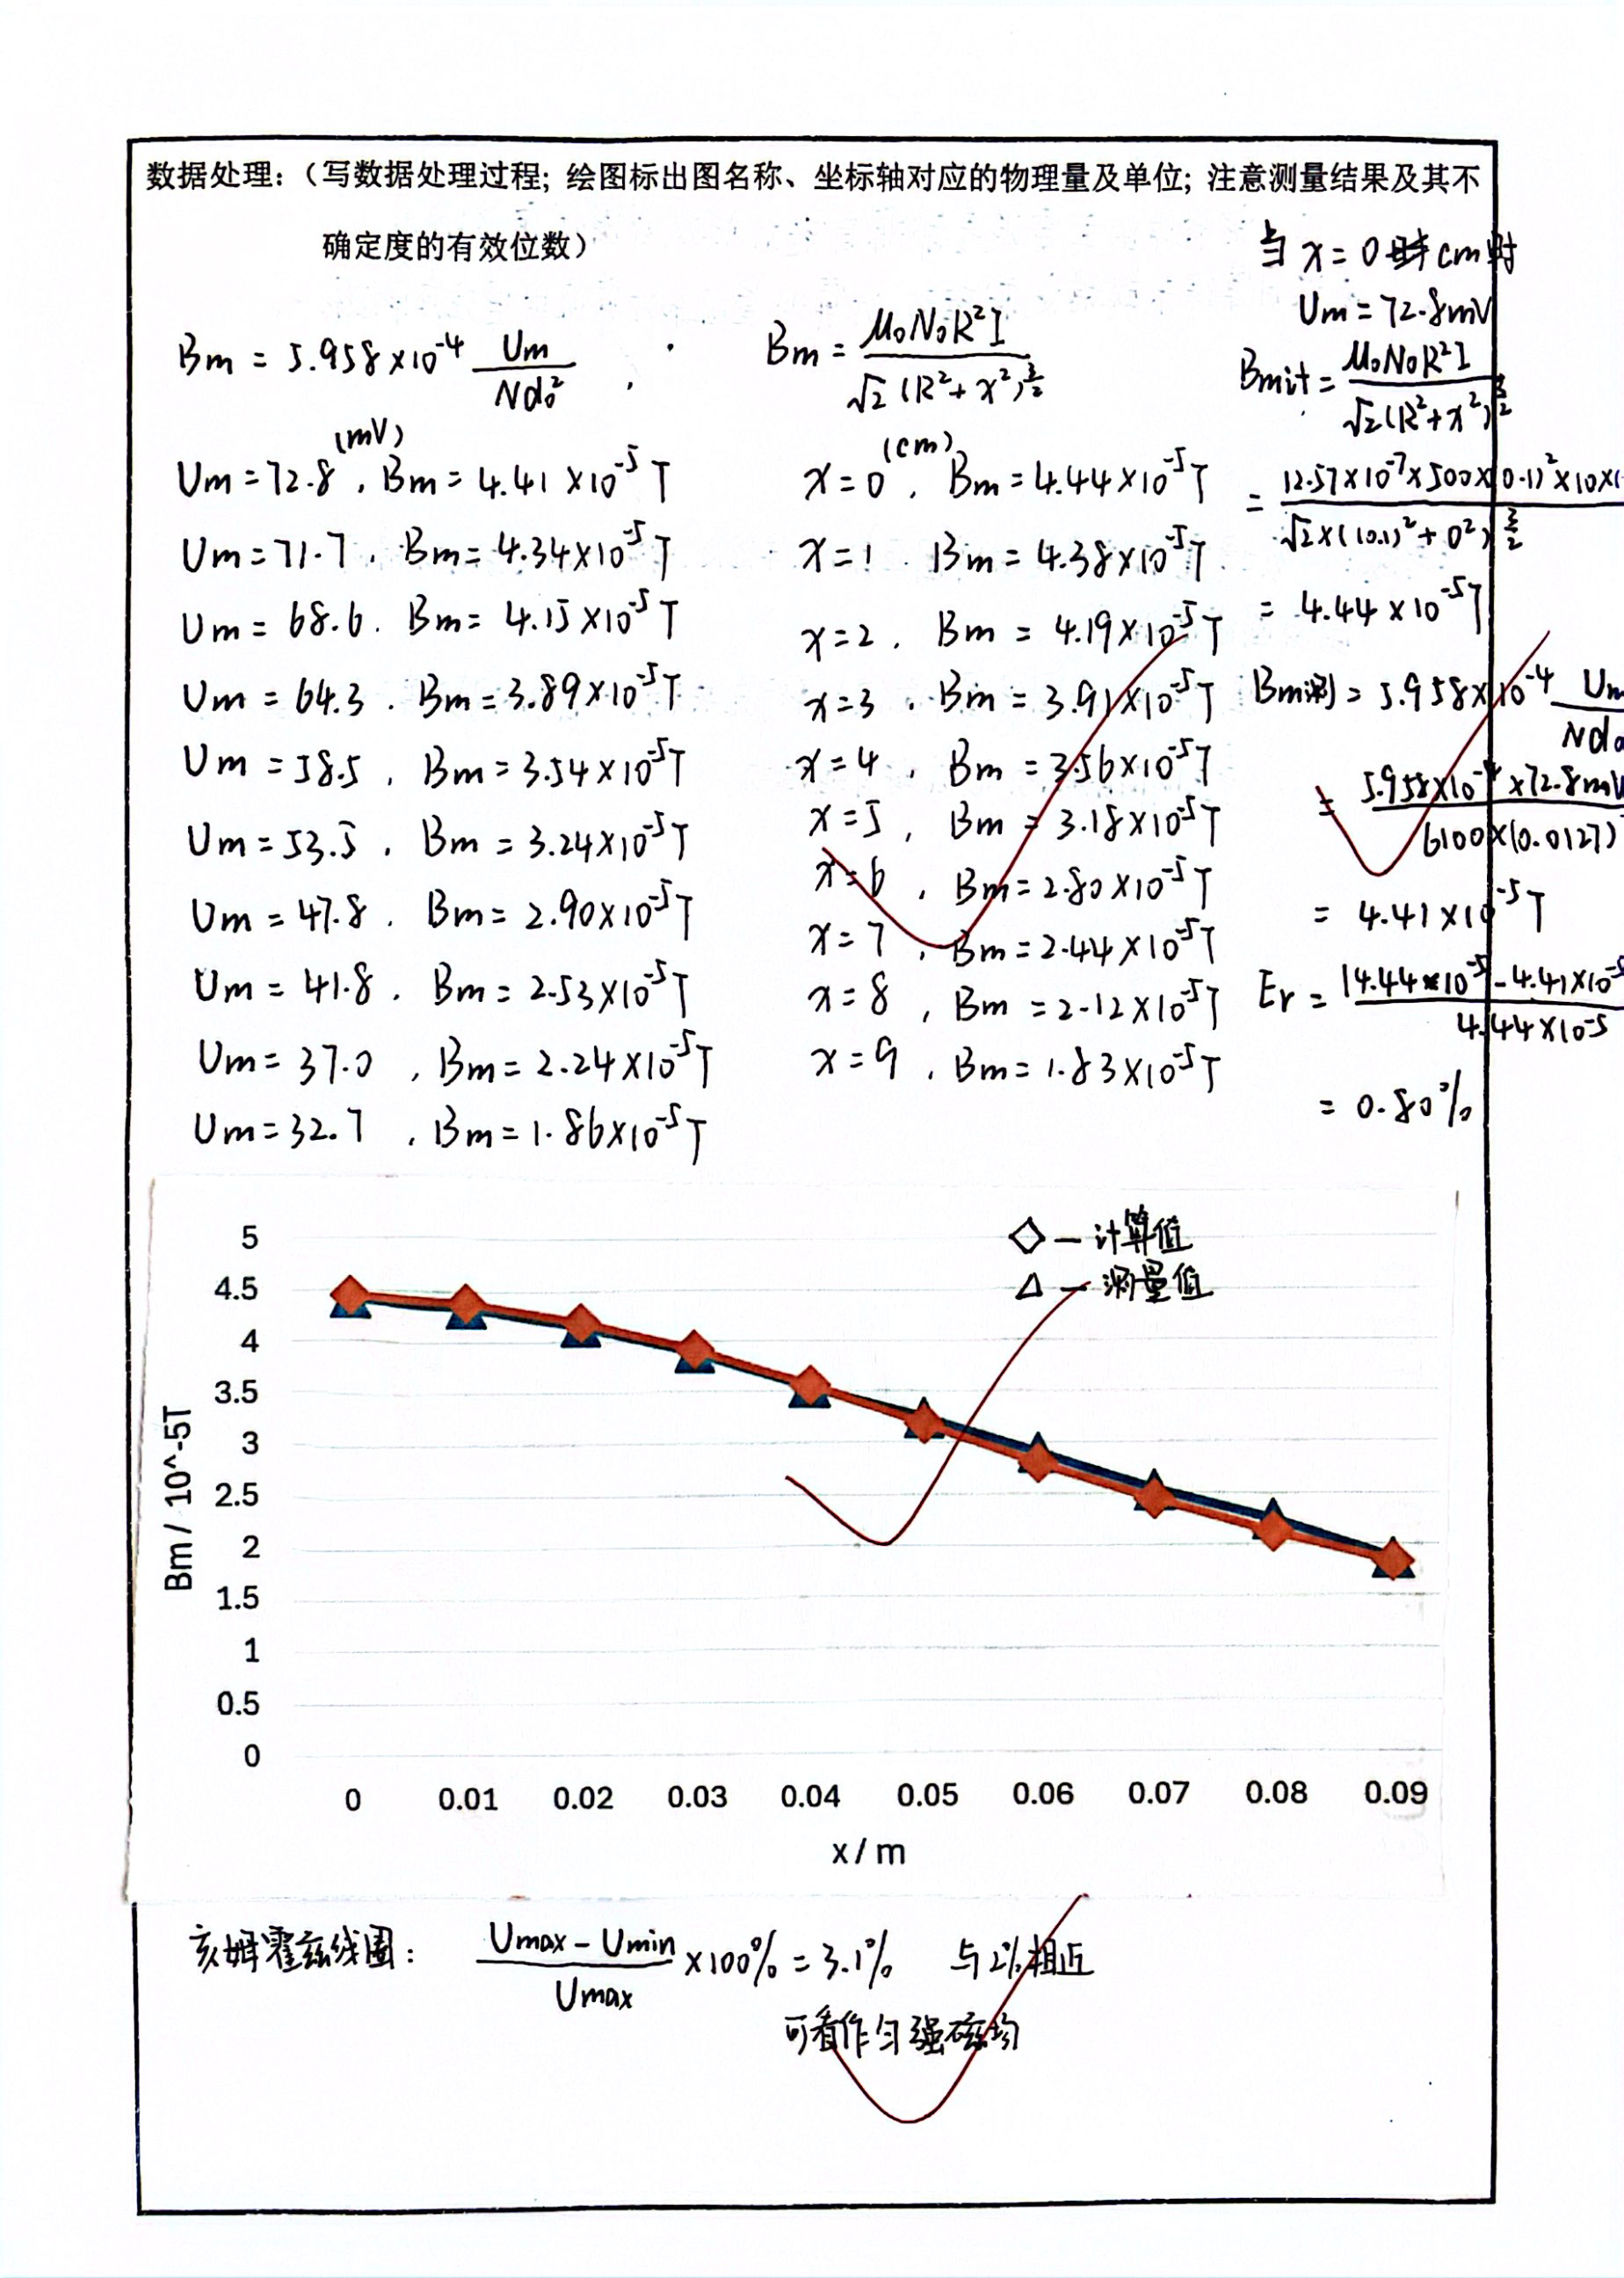 数据处理：（写数据处理过程；绘图标出图名称、坐标轴对应的物理量及单位；注意测量结果及其不
确定度的有效位数）
Bm = 5.958×10⁻⁴ Um/Nd₀² ,
(mV)
Um=72.8 , Bm=4.41×10⁻⁵T
Um=71.7 , Bm=4.34×10⁻⁵T
Um=68.6 . Bm=4.15×10⁻⁵T
Um=64.3 . Bm=3.89×10⁻⁵T
Um=58.5 , Bm=3.54×10⁻⁵T
Um=53.5 , Bm=3.24×10⁻⁵T
Um=47.8 . Bm=2.90×10⁻⁵T
Um=41.8 . Bm=2.53×10⁻⁵T
Um=37.0 , Bm=2.24×10⁻⁵T
Um=32.7 , Bm=1.86×10⁻⁵T
Bm = μ₀N₀R²I/√2(R²+x²)^(3/2)
(cm)
x=0 , Bm=4.44×10⁻⁵T
x=1 . Bm=4.38×10⁻⁵T
x=2 , Bm=4.19×10⁻⁵T
x=3 , Bm=3.91×10⁻⁵T
x=4 , Bm=3.56×10⁻⁵T
x=5 , Bm=3.18×10⁻⁵T
x=6 , Bm=2.80×10⁻⁵T
x=7 , Bm=2.44×10⁻⁵T
x=8 , Bm=2.12×10⁻⁵T
x=9 , Bm=1.83×10⁻⁵T
当 x=0 cm时
Um=72.8mV
Bm计=μ₀N₀R²I/√2(R²+x²)^(3/2)
= 12.57×10⁻⁷×500×(0.1)²×10×1/√2×((0.1)²+0²)^(3/2)
= 4.44×10⁻⁵T
Bm测=5.958×10⁻⁴ Um/Nd₀
= 5.958×10⁻⁴×72.8mV/6100×(0.0127)
= 4.41×10⁻⁵T
Er = |4.44×10⁻⁵-4.41×10⁻⁵/4.44×10⁻⁵
= 0.80%
◇ — 计算值
△ — 测量值
5
4.5
4
3.5
3
2.5
2
1.5
1
0.5
0
Bm / 10^-5T
0 0.01 0.02 0.03 0.04 0.05 0.06 0.07 0.08 0.09
x / m
亥姆霍兹线圈： Umax-Umin/Umax ×100%=3.1% 与2%相近
可看作匀强磁场